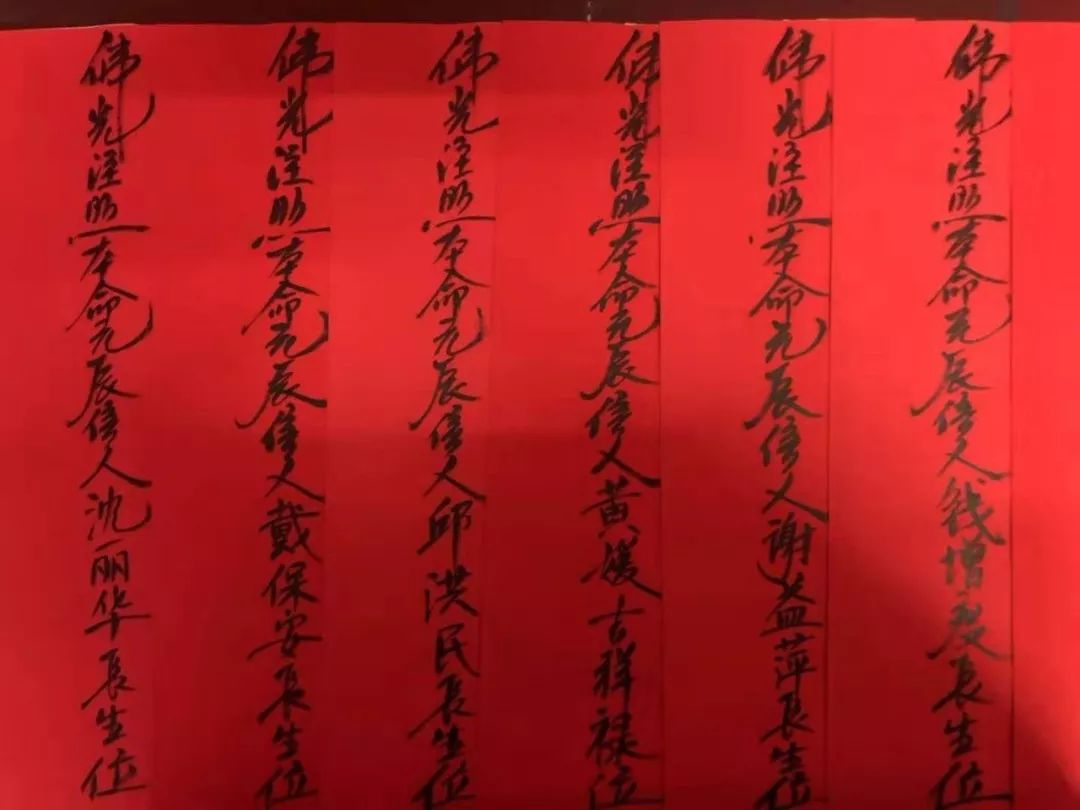 佛光注照本命元辰信人钱增庆長生位
佛光注照本命元辰信人谢益萍長生位
佛光注照本命元辰信人黄媛吉祥禄位
佛光注照本命元辰信人邱洪民長生位
佛光注照本命元辰信人戴保安長生位
佛光注照本命元辰信人沈丽华長生位